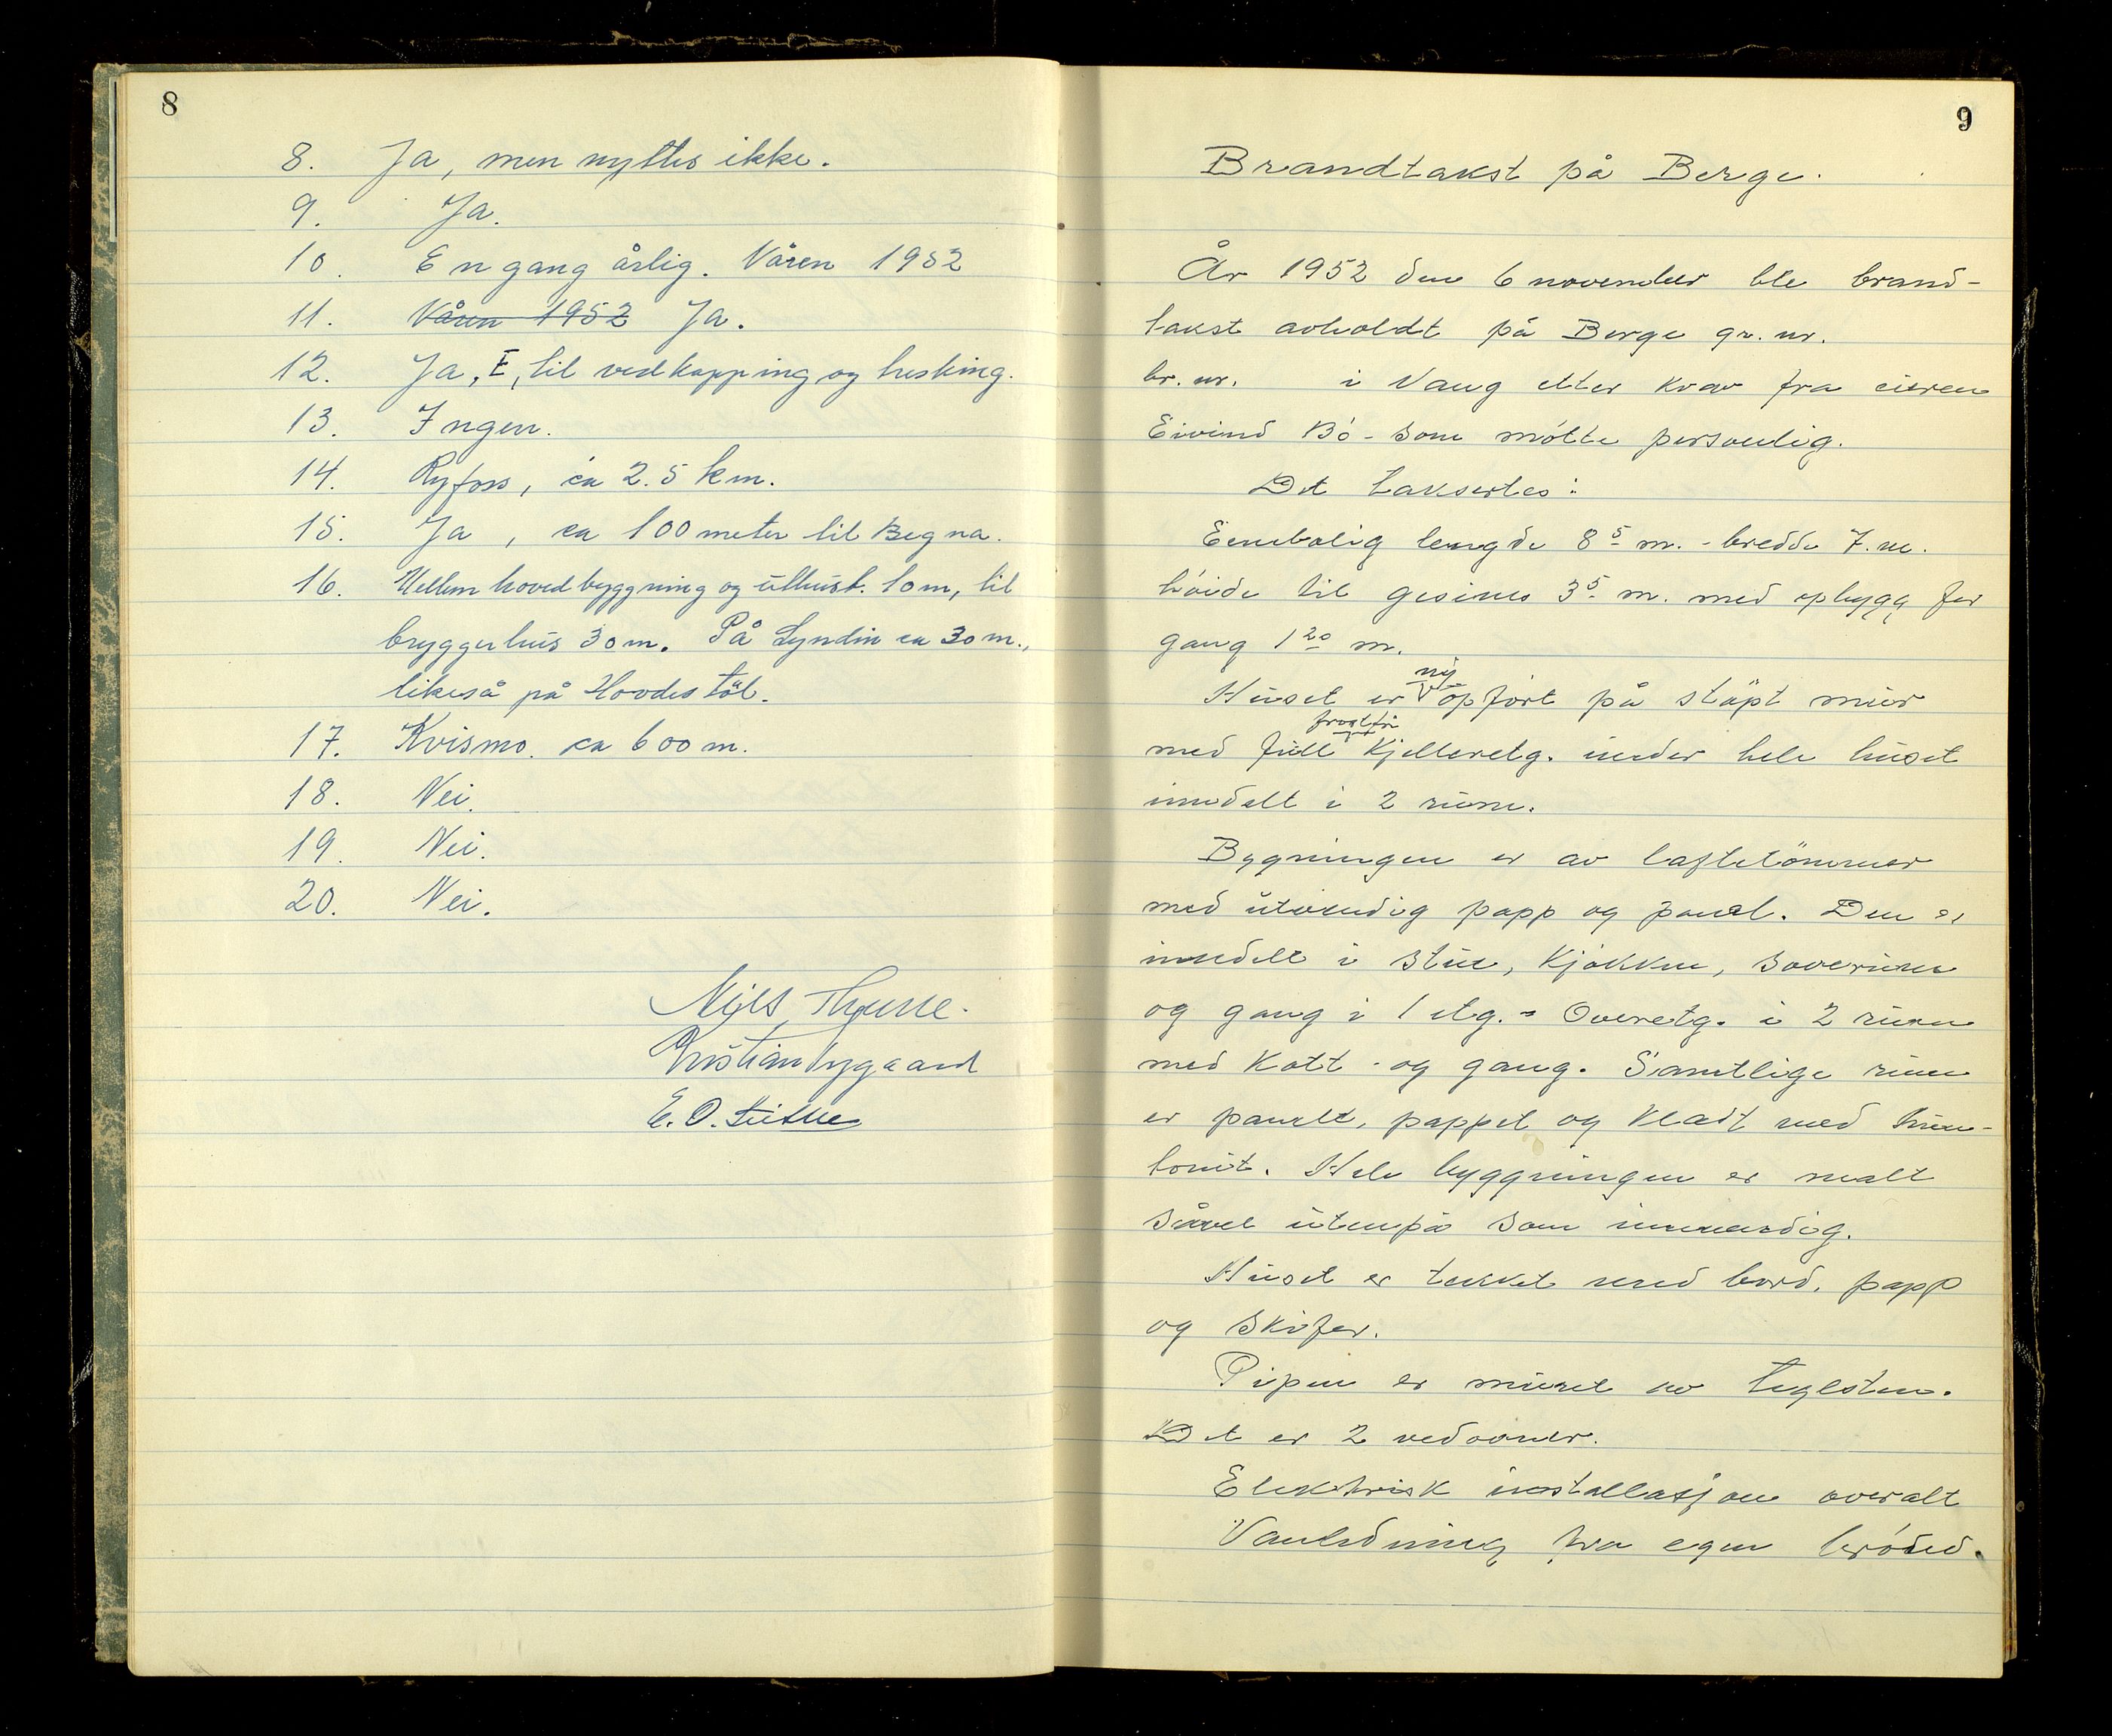 8
8. Ja, men nyttes ikke.
9. Ja.
10. En gang årlig. Våren 1952
11. Våren 1952 Ja.
12. Ja, I, til vedkapping og tresking.
13. Ingen.
14. Ryfoss, ca 2.5 km.
15. Ja, ca 100 meter til Begna.
16. Mellem hovedbyggning og uthus. 10 m, til
bryggerhus 30 m. På Syndin ca 30 m.,
likeså på Hovdestöl.
17. Kvismo. ca 600 m.
18. Nei.
19. Nei.
20. Nei.
Nils Thune.
Kristian Nygaard
E. O.
9
Brandtakst på Berge.
År 1952 den 6 november ble brand-
takst avholdt på Berge gr. nr.
br. nr. i Vang etter krav fra eieren
Eivind Bö - som mötte personlig.
Det taksertes:
Eenebolig lengde 8 5 m. - bredde 7. m.
höide til gesims 3 5 m. med opbygg for
gang 1 20 m.
Huset er ny opfört på stöpt mur
med full frostfri kjelleretg. under hele huset
inndelt i 2 rum.
Bygningen er av laftetömmer
med utvendig papp og panel. Den er
inndelt i stue, kjökken, soverum
og gang i 1 etg. - Overetg. i 2 rum
med kott - og gang. Samtlige rum
er panelt, pappet og kledt med hun-
tonit. Hele byggningen er malt
såvel utenpå som innvendig.
Huset er tekket med bord, papp
og skifer.
Pipen er muret av teglsten.
Det er 2 vedovner.
Elektrisk installasjon overalt
Vanledning fra egen brönd.